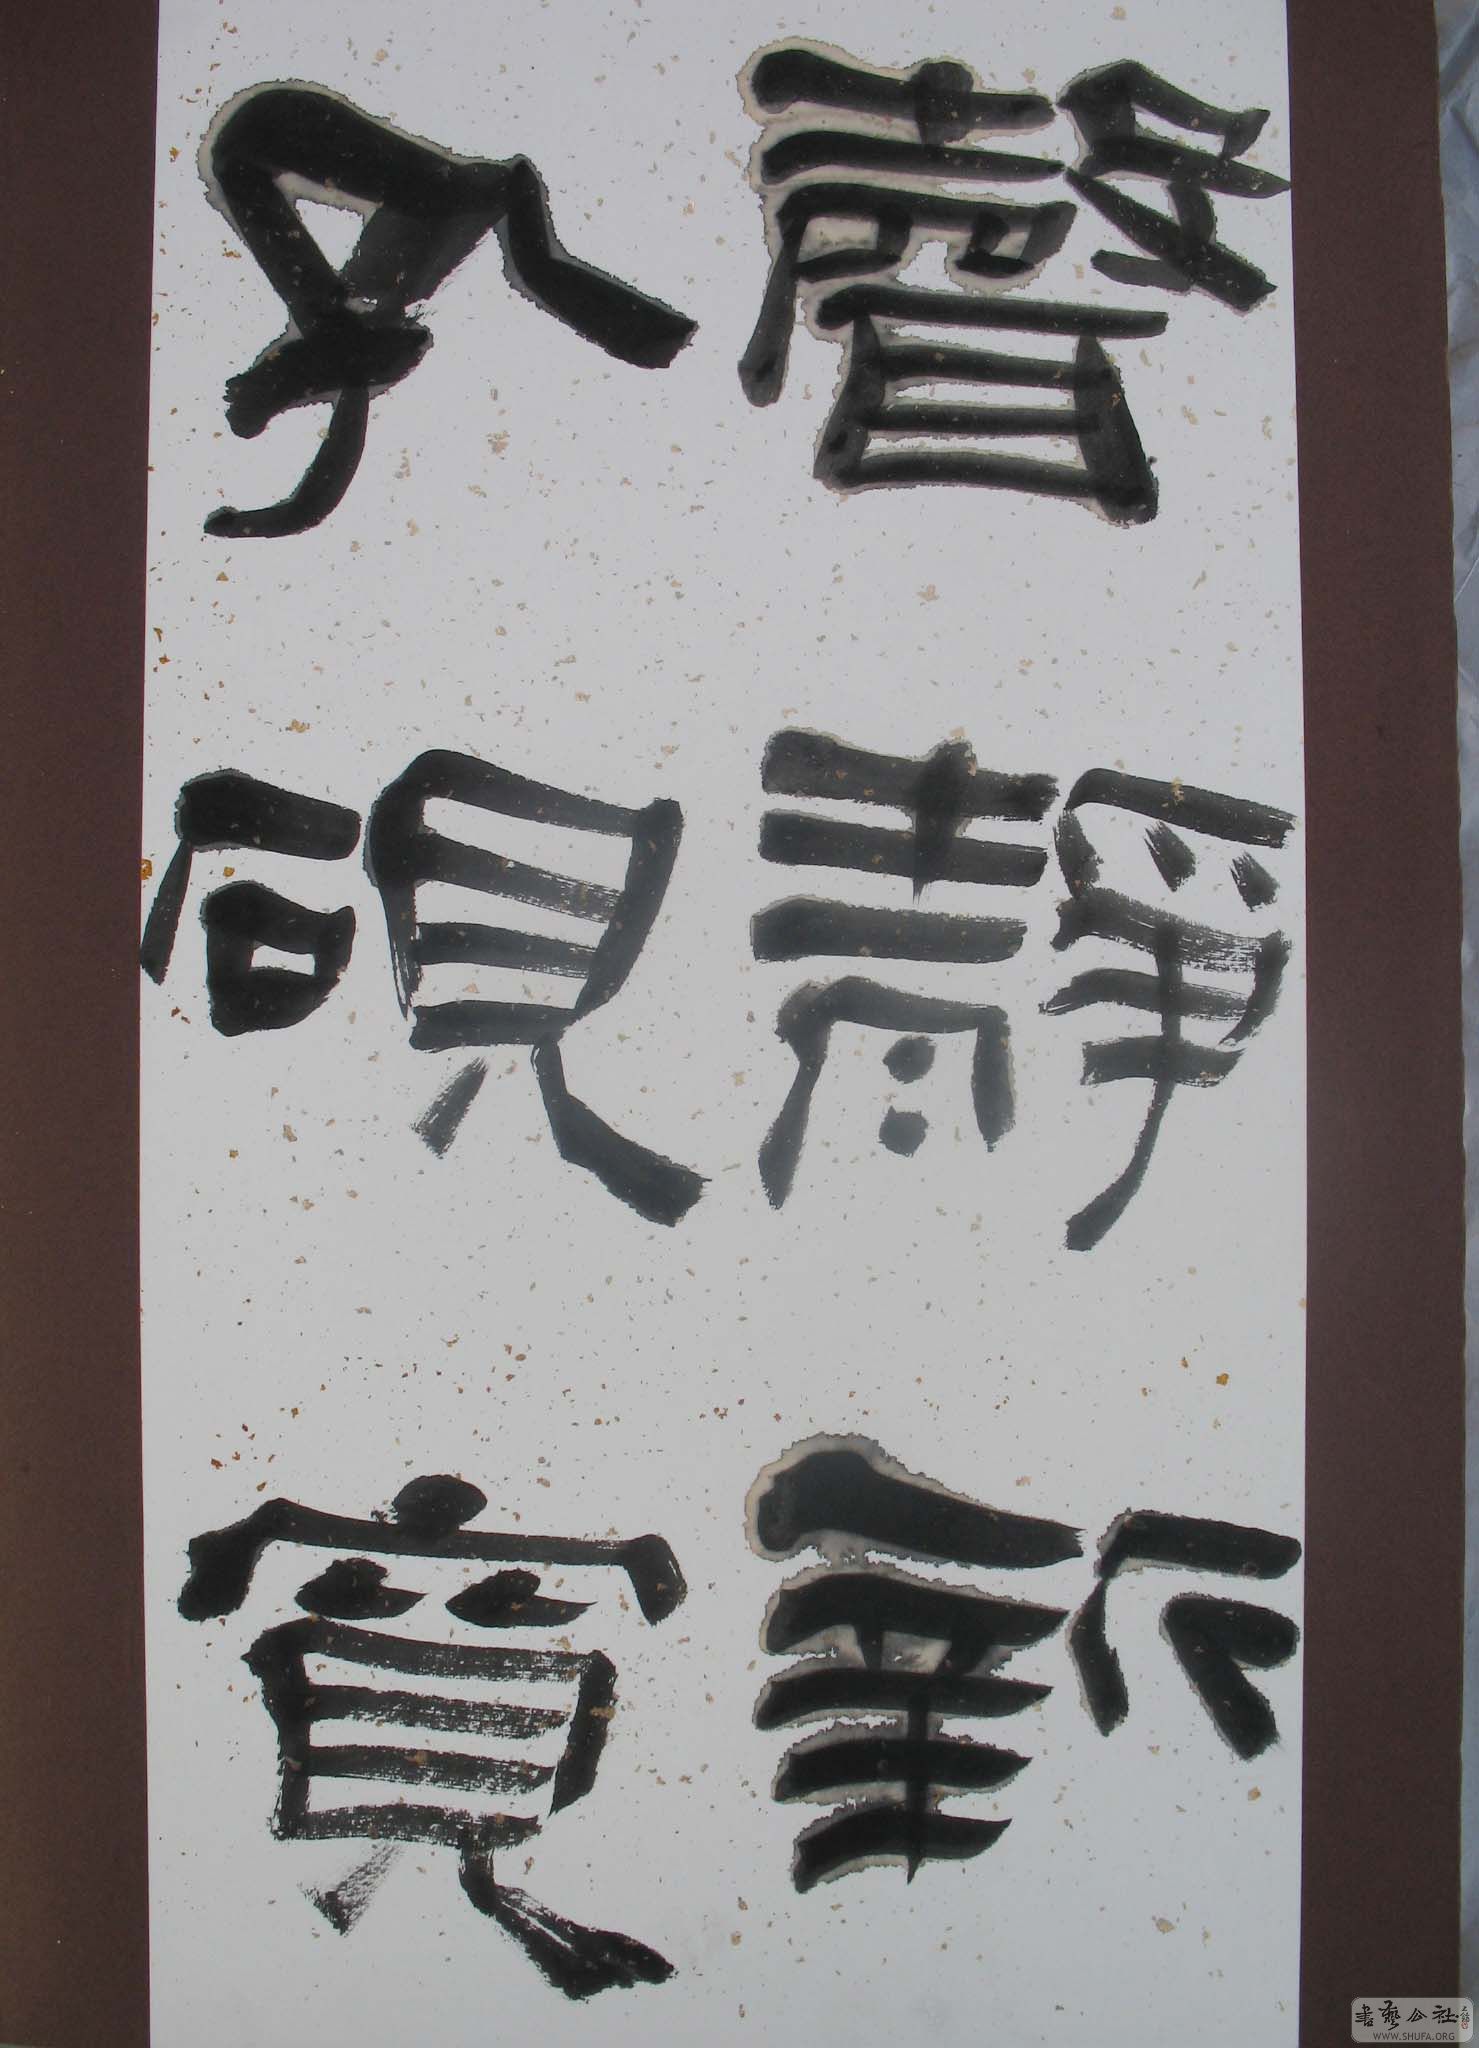 聲靜新
孔硯寬
書藝公社
WWW.SHUFA.ORG